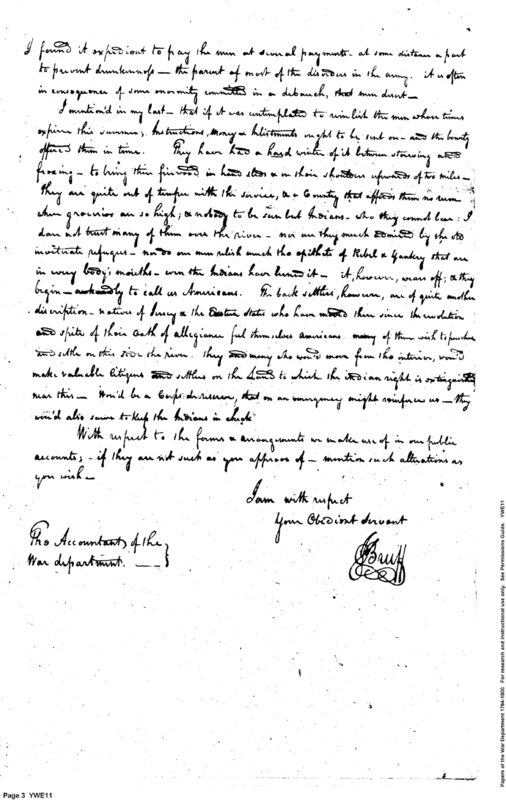 I found it expedient to pay the men at several payments - at some distance a part
to prevent drunkenness - the parent of most of the disorders in the army. it is often
in consequence of some enormity committed in a debauch, that men desert -
I mention'd in my last - that if it was contemplated to reinlist the men whose times
expire this summer; Instructions, Money & Inlistments ought to be sent on - and the bounty
offered them in time. They have had a hard winter of it between starving and
freezing - to bring their firewood in hand sleds & on their shoulders upwards of two miles -
they are quite out of temper with the service, & a Country that affords them no rum
when groceries are so high; & nobody to be seen but Indians - who they cannot bear: I
dare not trust many of them over the river - nor are they much admired by the old
inveterate refugees - nor do our men relish much the epithets of Rebel & Yankey that are
in every body's mouths - even the Indians have learned it - it, however, wears off; & they
begin - to call us Americans. The back settlers, however, are of quite another
discription - natives of Jersey & the Easter States who have moved there since the revolution
and spite of their Oath of allegiance feel themselves americans. many of them wish to purchase
and settle on this side the river. they and many who wou'd move from the interior, wou'd
make valuable Citizens and settlers on the Land to which the indian right is extinguished
near this - Wou'd be a Corps de reserve, that on an emergency might reinforce us - they
wou'd also serve to keep the Indians in check
With respect to the forms & arrangements we make use of in our public
accounts; - if they are not such as you approve of - mention such alterations as
you wish -
I am with respect
Your Obedient Servant
Bruff
The Accountant of the
War department.
Page 3 YWE11
Papers of the War Department 1784-1800. For research and instructional use only. See Permissions Guide. YWE11